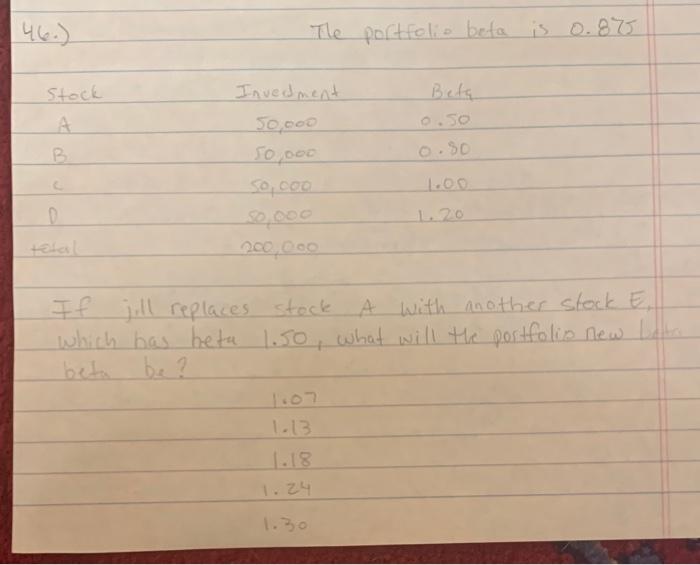 46.) The portfolio beta is 0.875
Stock Invesment Beta
A 50,000 0.50
B 50,000 0.80
C 50,000 1.00
D 50,000 1.20
total 200,000
If jill replaces stock A with another stock E,
which has beta 1.50, what will the portfolio new beta
beta be?
1.07
1.13
1.18
1.24
1.30